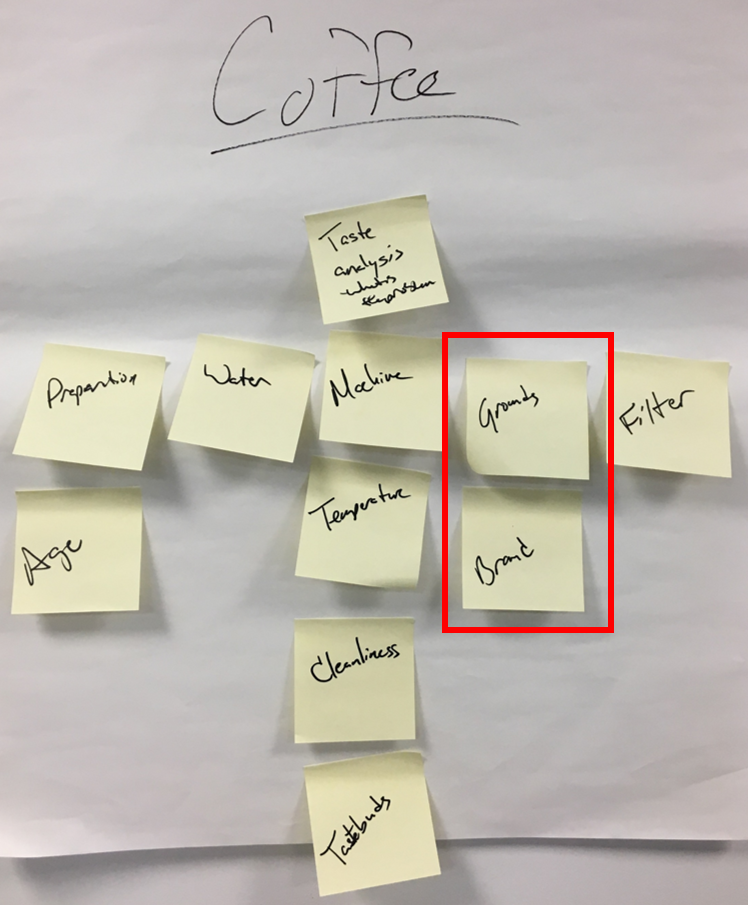 Coffee
Taste
analysis
- what is
the problem
Preparation
Water
Machine
Grounds
Filter
Age
Temperature
Brand
Cleanliness
Tastebuds